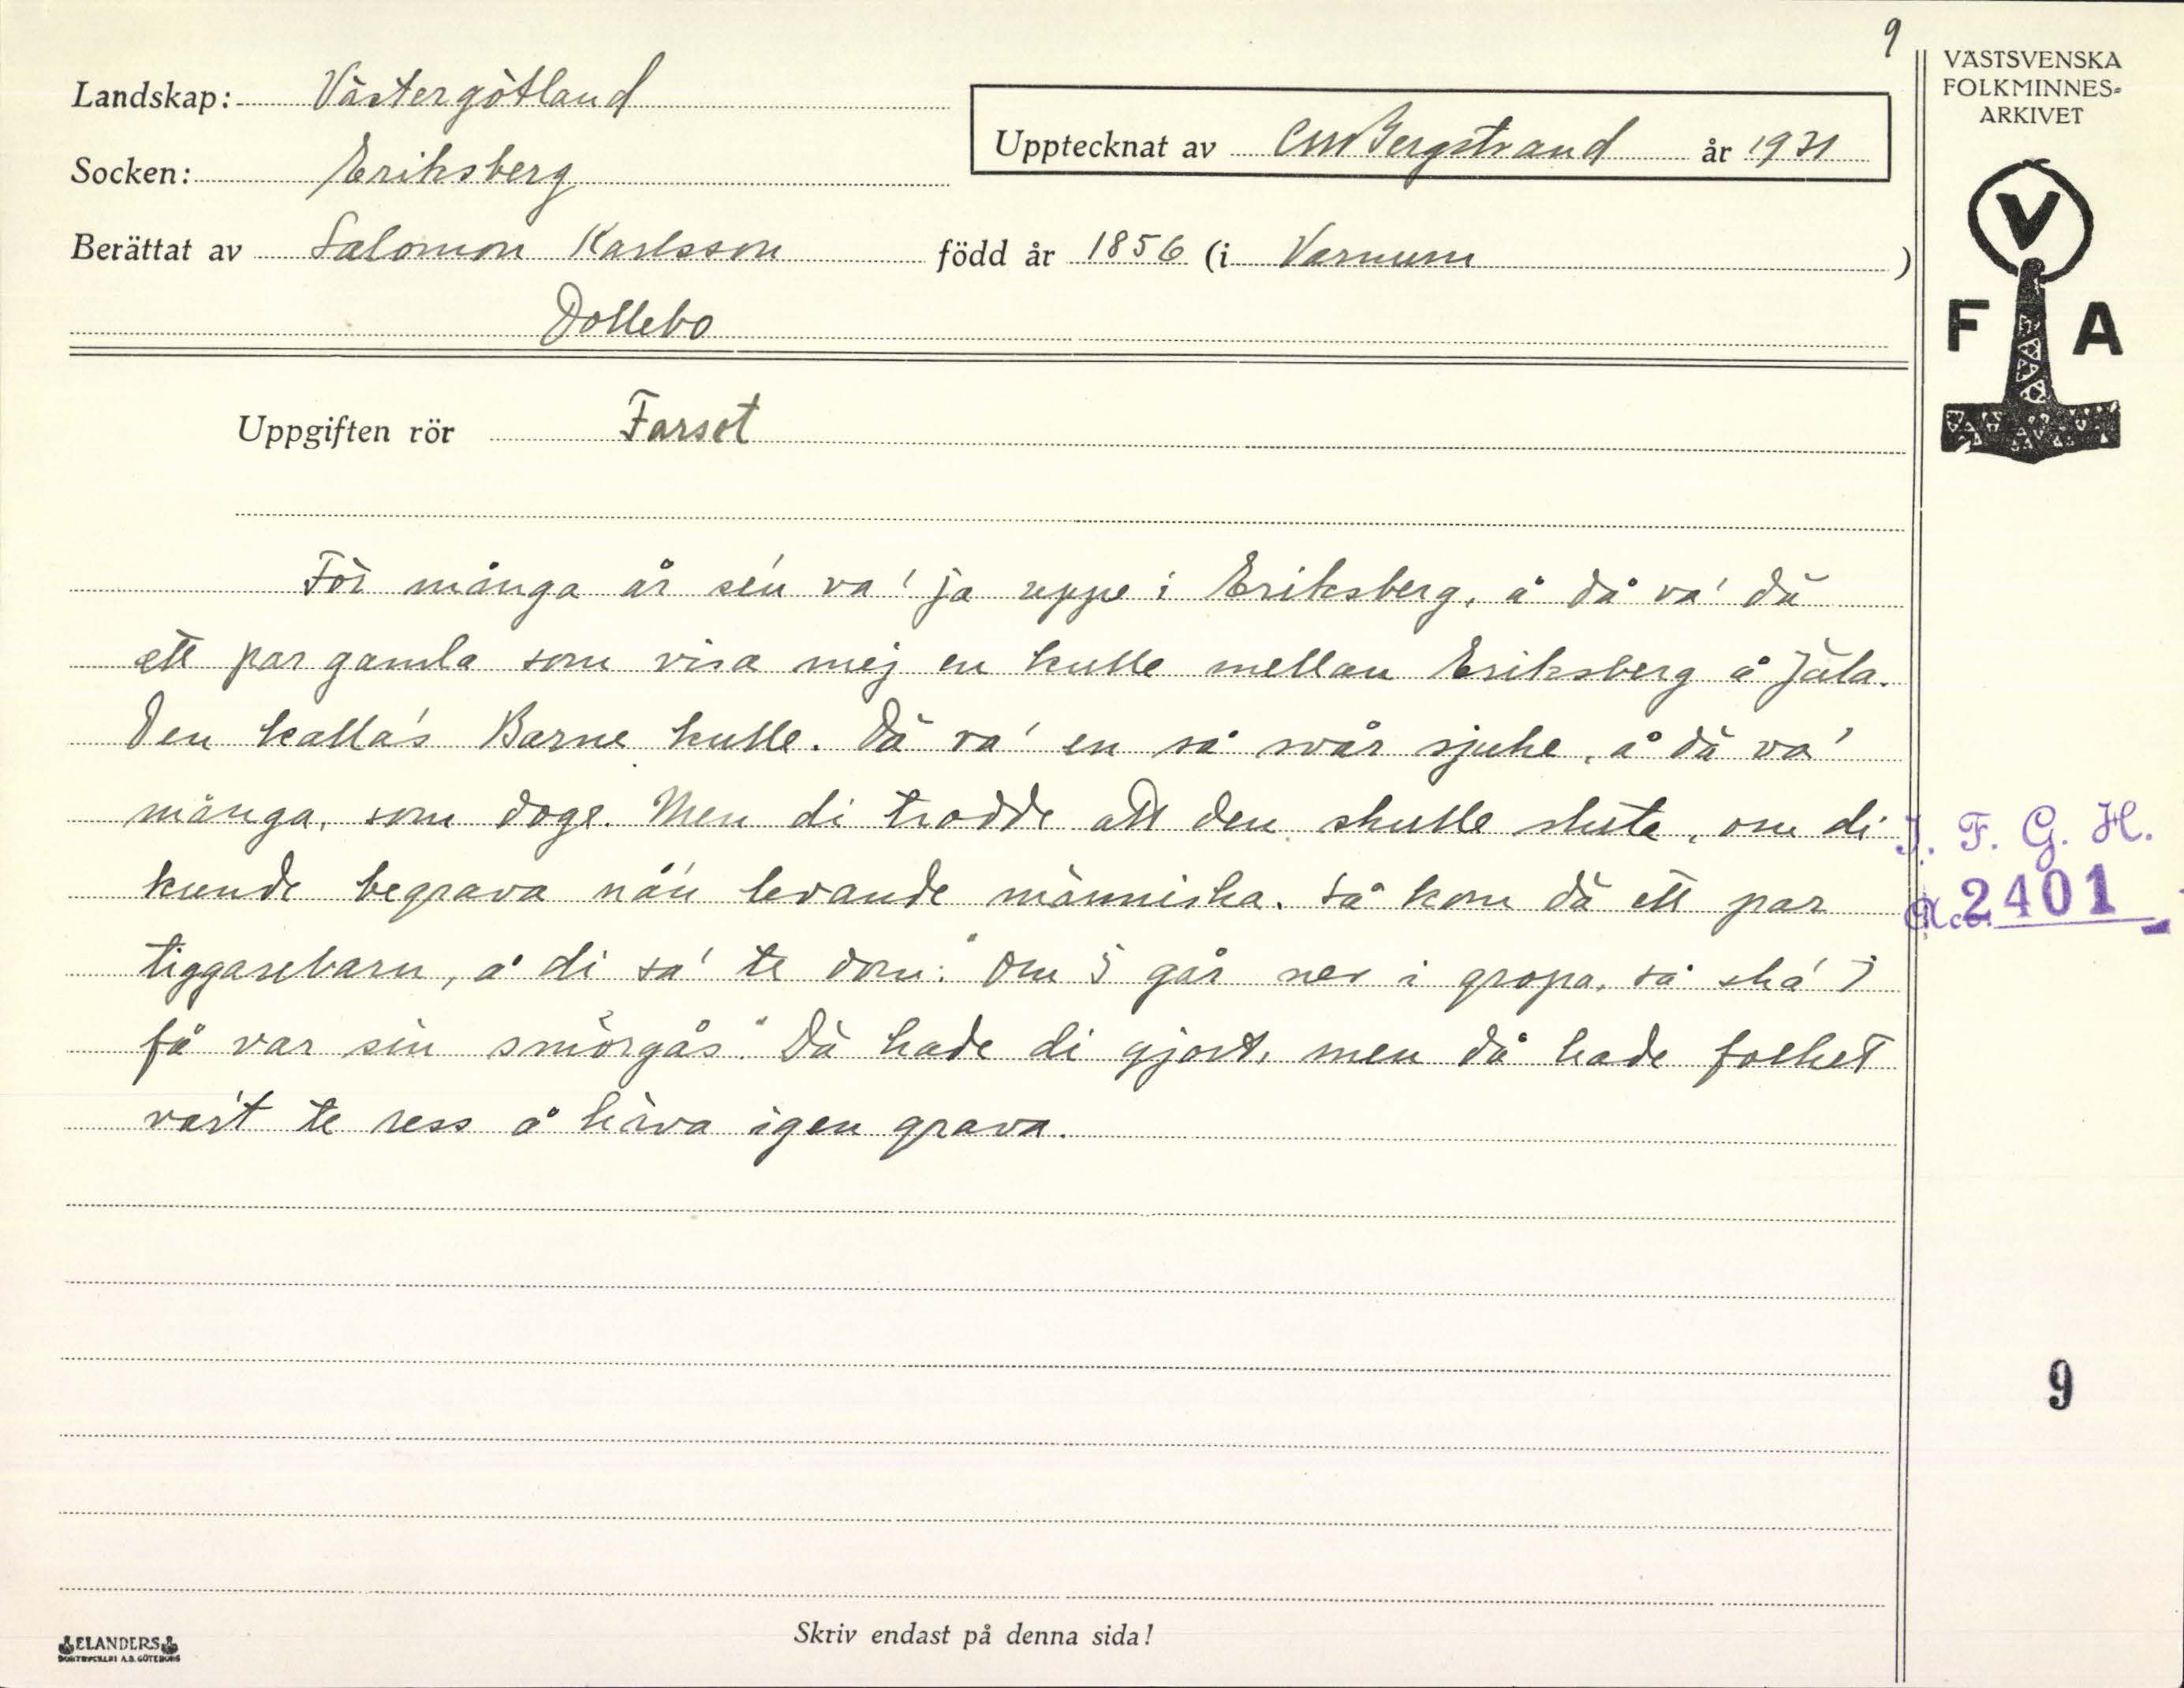 9
VÄSTSVENSKA
FOLKMINNES-
ARKIVET
Landskap: Västergötland
Upptecknat av CM Bergstrand år 1931
Socken: Eriksberg
Berättat av Salomon Karlsson född år 1856 (i Varnum )
Dollebo
V
F A
Uppgiften rör Farsot
För många år se'n va' ja uppe i Eriksberg, å då va' dä
ett par gamla som visa mej en kulle mellan Eriksberg å Jäla.
Den kalla's Barne kulle. Dä va' en så svår sjuke, å dä va'
många, som doge. Men di trodde att den skulle sluta, om di
kunde begrava nå'n levande människa. Så kom dä ett par
tiggarebarn, å di sa' te dom: "Om I går ner i gropa, så ska' I
få var sin smörgås." Dä hade di gjort, men då hade folket
var't te ress å härva igen grava.
I. F. G. H.
Acc. 2401
9
Skriv endast på denna sida!
ELANDERS
BOKTRYCKERI A.B. GÖTEBORG